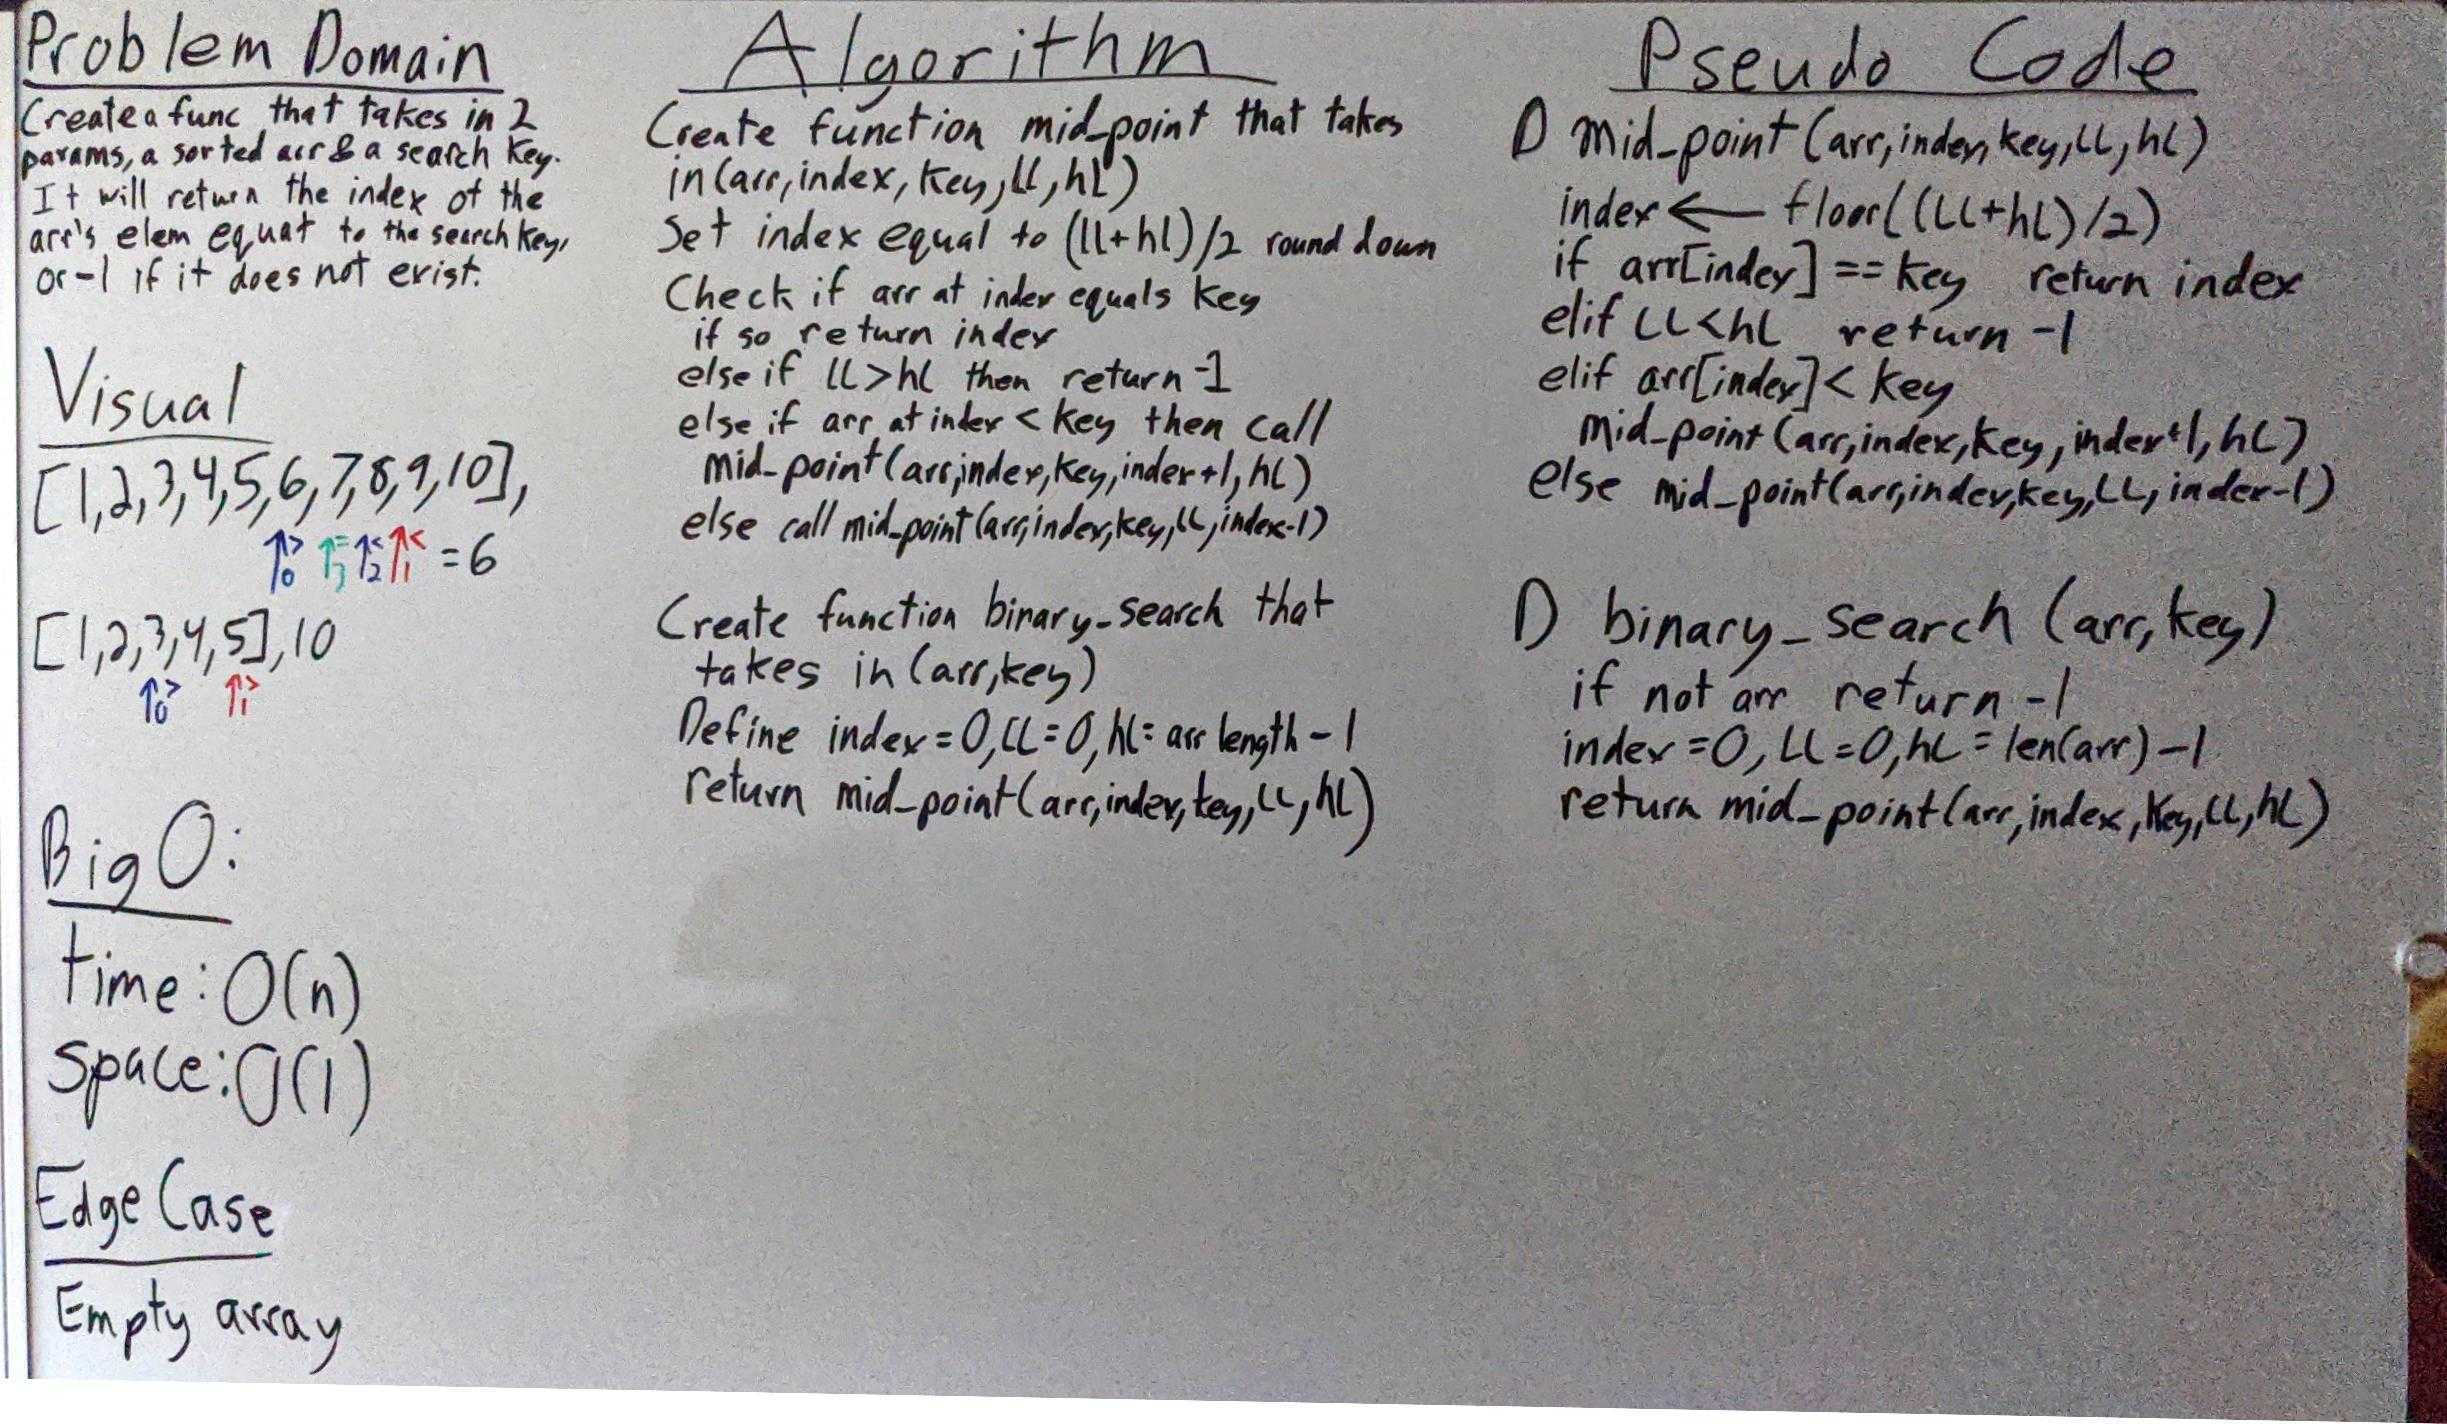 Problem Domain
Create a func that takes in 2
params, a sorted arr & a search key.
It will return the index of the
arr's elem equat to the search key,
or -1 if it does not exist.
Visual
[1,2,3,4,5,6,7,8,9,10],
↑>0 ↑=3 ↑<2 ↑<1 = 6
[1,2,3,4,5],10
↑>0 ↑>1
Big O:
time: O(n)
space: O(1)
Edge Case
Empty array
Algorithm
Create function mid_point that takes
in (arr, index, key, LL, hL)
Set index equal to (LL+hL)/2 round down
Check if arr at index equals key
if so return index
else if LL>hL then return -1
else if arr at index < key then call
mid_point(arr,index,key,index+1,hL)
else call mid_point(arr,index,key,LL,index-1)
Create function binary_search that
takes in (arr,key)
Define index=0, LL=0, hL= arr length -1
return mid_point(arr,index,key,LL,hL)
Pseudo Code
D mid_point(arr,index,key,LL,hL)
index ← floor((LL+hL)/2)
if arr[index] == key return index
elif LL<hL return -1
elif arr[index] < key
mid_point(arr,index,key,index+1,hL)
else mid_point(arr,index,key,LL,index-1)
D binary_search (arr,key)
if not arr return -1
index=0, LL=0, hL = len(arr)-1
return mid_point(arr,index,key,LL,hL)